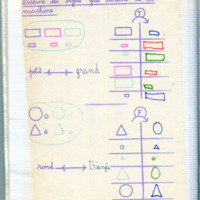 Dessine les objets qui
machine
T
petit ↔ grand
F
rond ↔ triangle